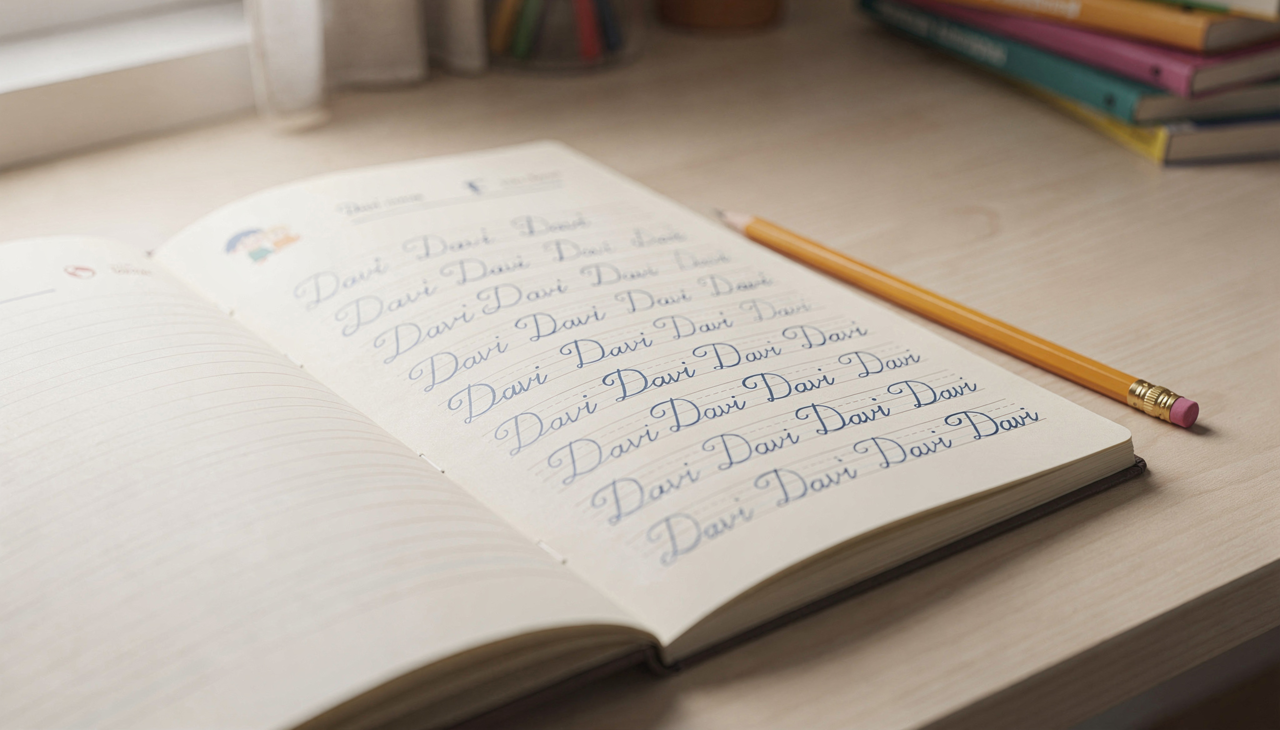 Davi Davi Davi
Davi Davi Davi Davi
Davi Davi Davi Davi
Davi Davi Davi Davi
Davi Davi Davi Davi
Davi Davi Davi Davi
Davi Davi Davi Davi
Davi Davi Davi Davi
Davi Davi Davi Davi